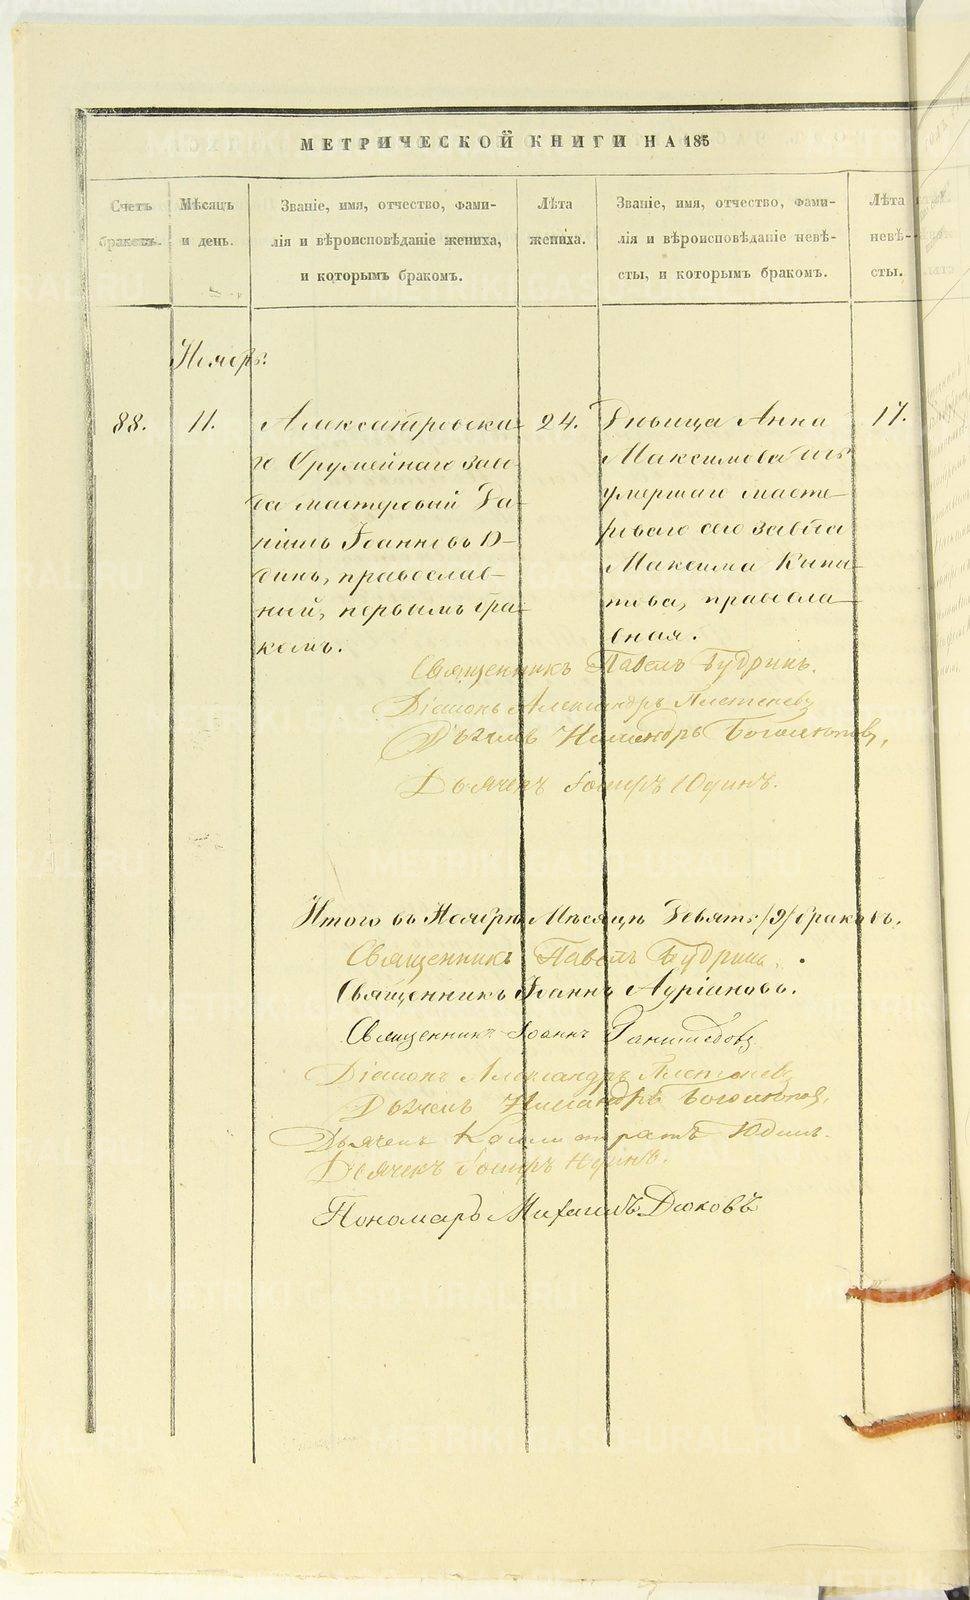 МЕТРИЧЕСКОЙ КНИГИ НА 185
Счетъ
браковъ.
Мѣсяцъ
и день.
Званіе, имя, отчество, фами-
лія и вѣроисповѣданіе жениха,
и которымъ бракомъ.
Лѣта
жениха.
Званіе, имя, отчество, фами-
лія и вѣроисповѣданіе невѣ-
сты, и которымъ бракомъ.
Лѣта
невѣ-
сты.
Ноябрь.
88.
11.
Александровска-
го Оружейнаго заво-
да мастеровый Да-
ніилъ Іоанновъ Ю-
динъ, православ-
ный, первымъ бра-
комъ.
24.
Дѣвица Анна
Максимова
умершаго масте-
роваго сего завода
Максима
правосла-
вная.
17.
Священникъ Павелъ Будринъ.
Діаконъ Александръ Плетеневъ
Дьячекъ Никандръ Боголюповъ,
Дьячекъ Іосифъ Юдинъ.
Итого въ Ноябрѣ Мѣсяцѣ Девять /9/ браковъ.
Священникъ Павелъ Будринъ.
Священникъ Іоаннъ Адріановъ.
Священникъ Іоаннъ
Діаконъ Александръ Плетеневъ
Дьячекъ Никандръ Боголюповъ,
Дьячекъ Каллистратъ Юдинъ.
Дьячекъ Іосифъ Юдинъ.
Пономарь Михаилъ Дюковъ
METRIKI.GASO-URAL.RU